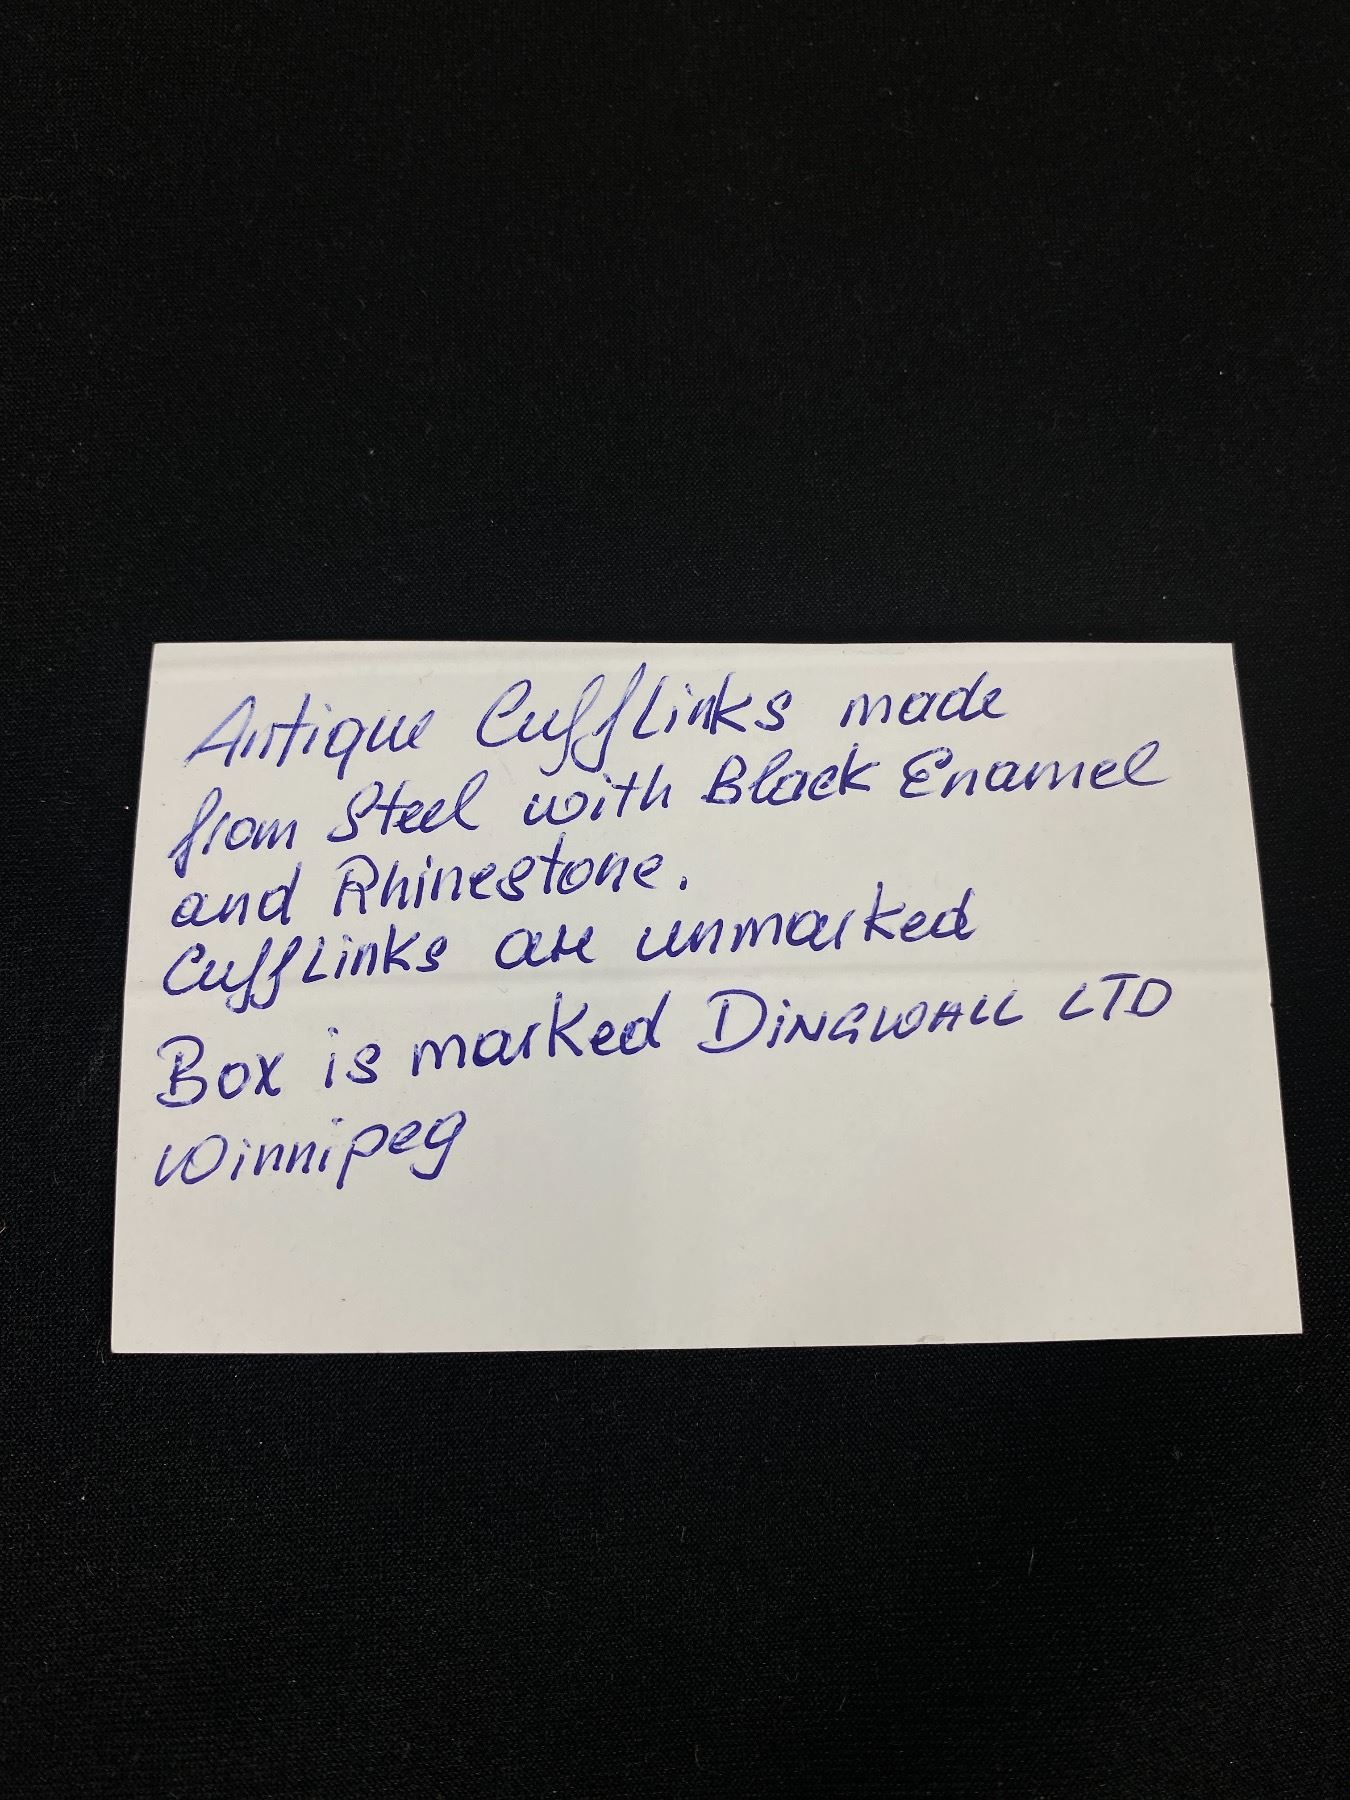 Antique CuffLinks made
from Steel with Black Enamel
and Rhinestone.
CuffLinks are unmarked
Box is marked DiNGWALL LTD
Winnipeg